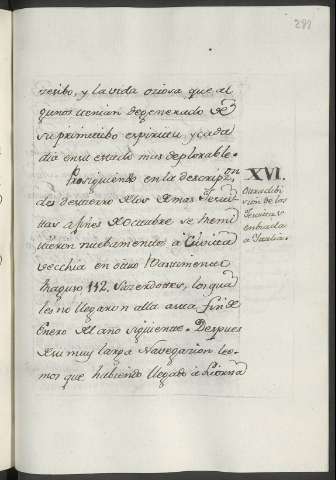 281
recibo, y la vida oziosa que al
gunos tenian degenerado de
su primitibo espiritu, y cada
dia en su estado mas deplorable.
Prosiguiendo en la descripz.on
del destierro de los demas Jesui
tas a fines de Octubre se remi
tieron nuebamente a Civita
vecchia en otro Bastimento
112. Sazerdotes, los qua
les no llegaron alla asta fin de
Enero del año siguiente. Despues
de su muy larga Navegazion lee
mos que habiendo llegado a Liorna
XVI.
Otra
sion de los
Jesuitas
entrada
a Italia.